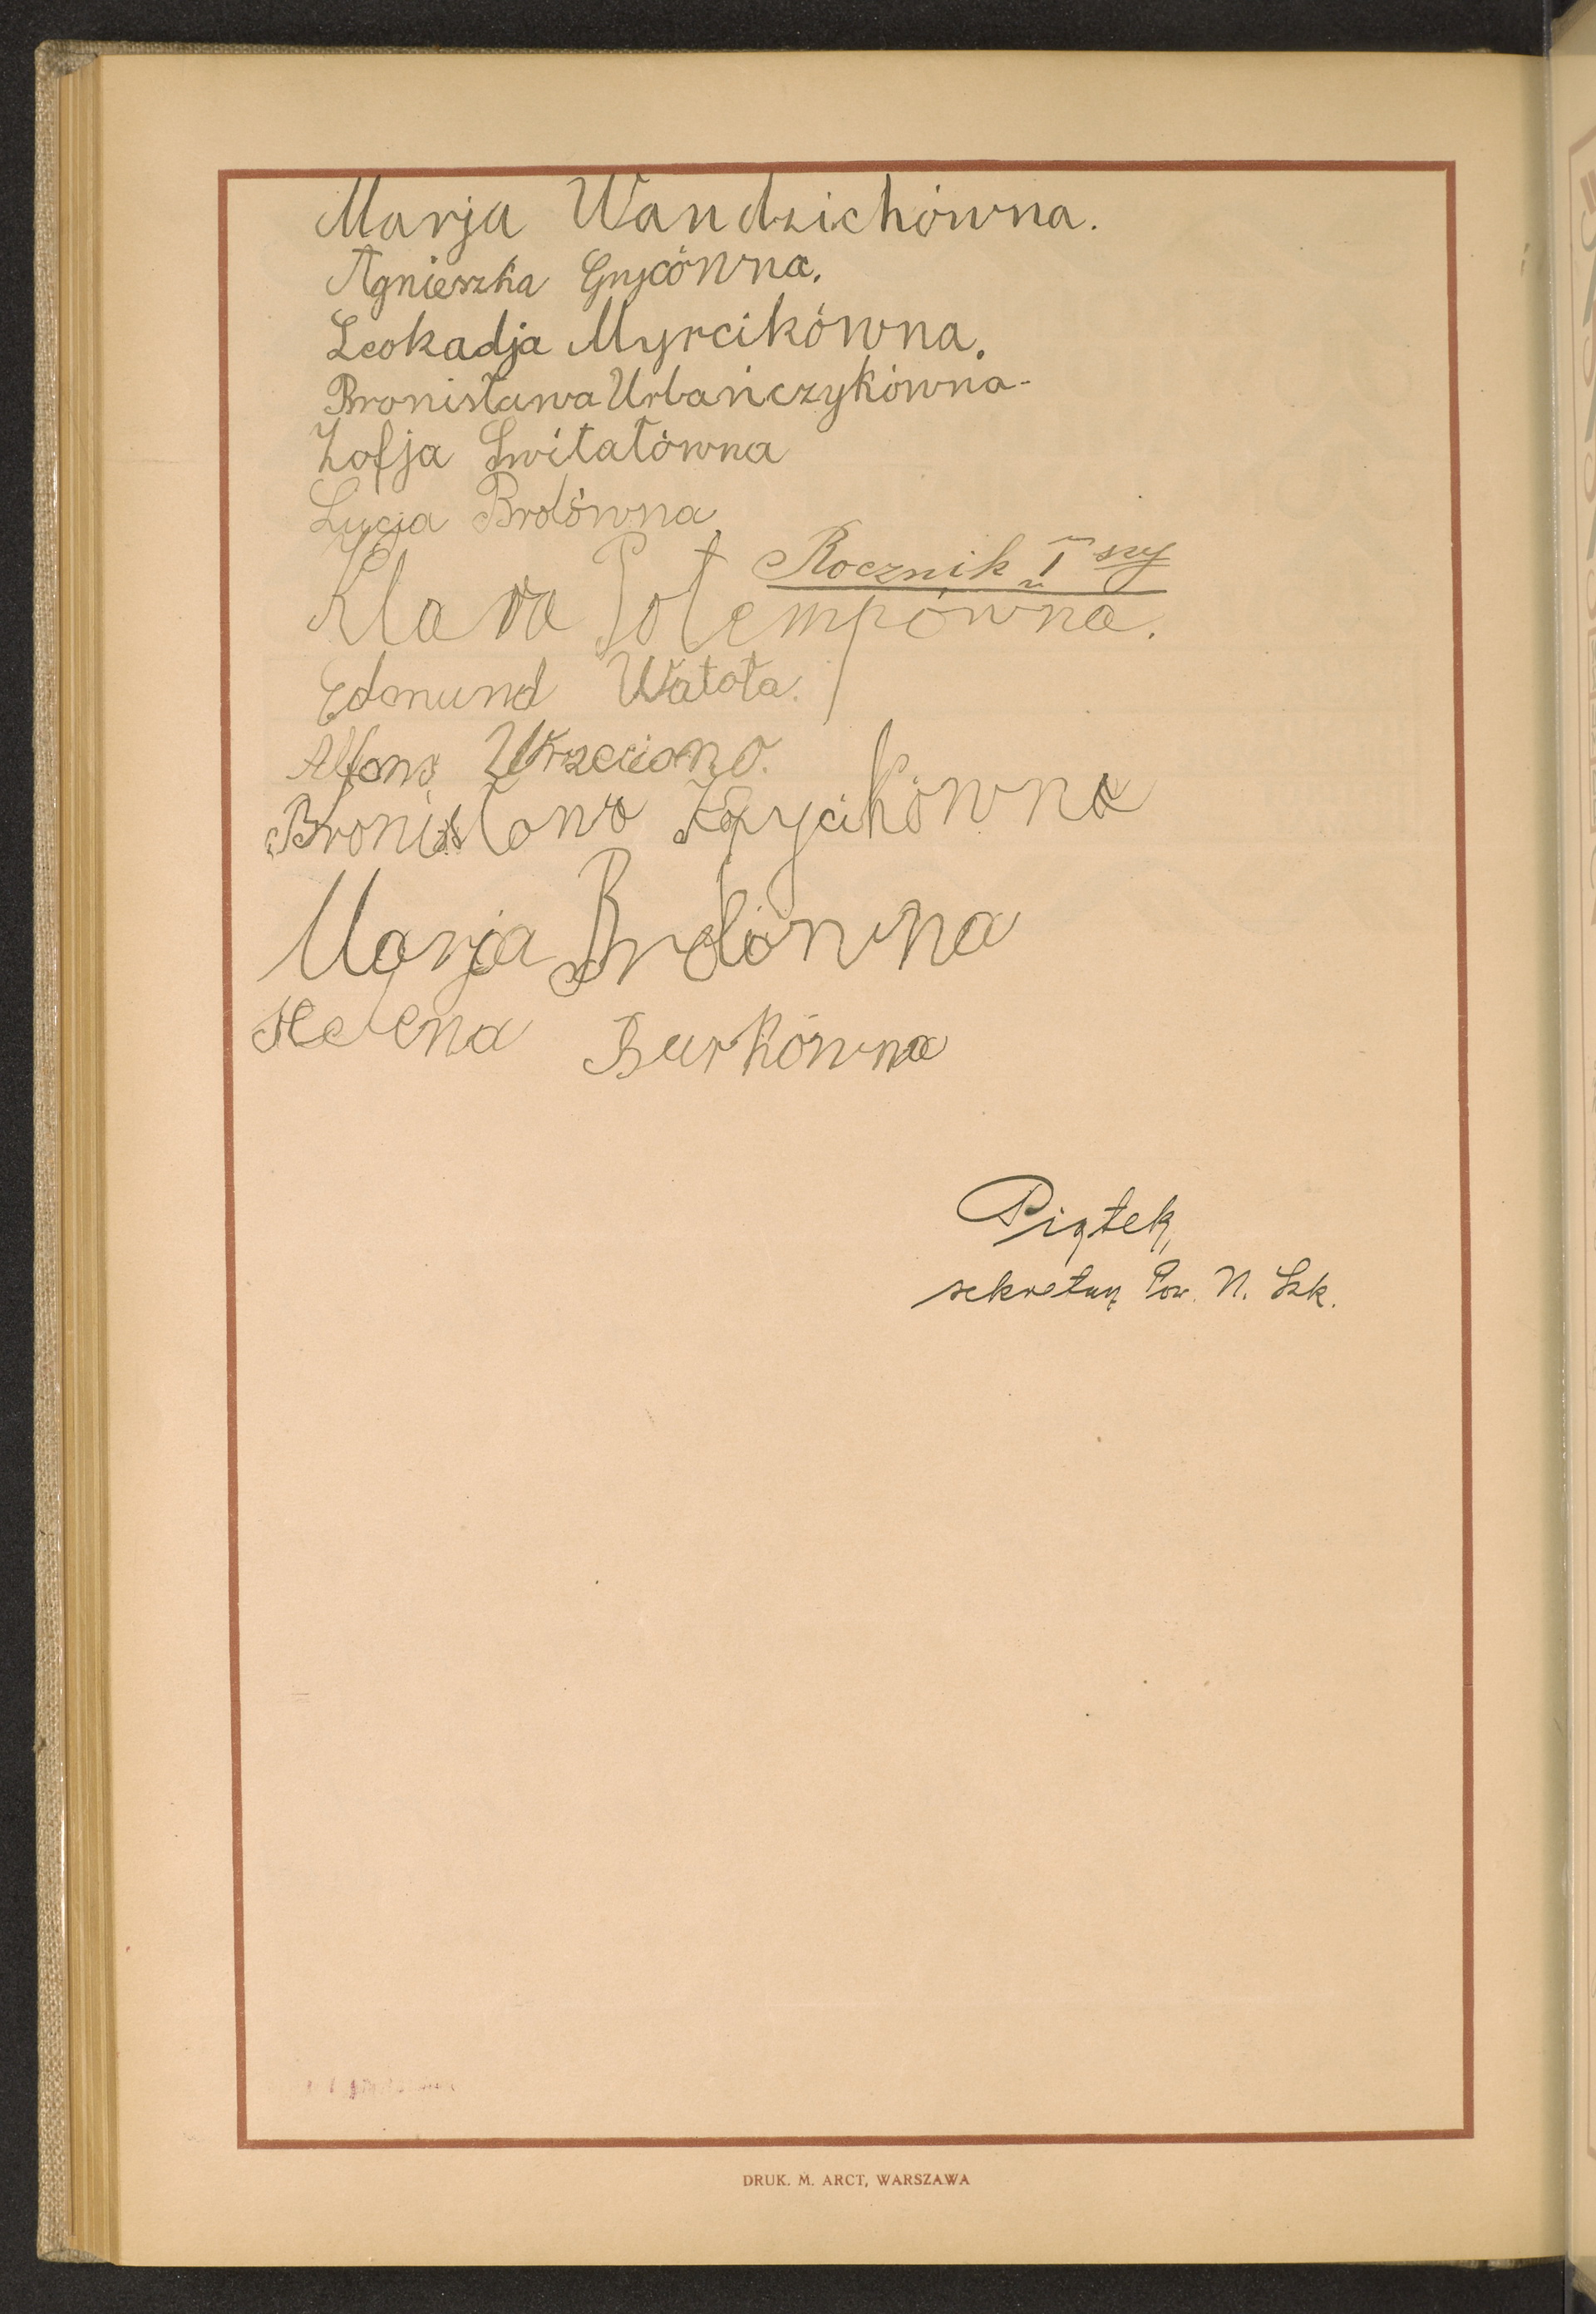 Marja Wandzichówna.
Agnieszka Grycówna.
Leokadja Myrcikówna.
Bronisława Urbańczykówna
Zofja Świtałówna
Łucja Brolówna
Rocznik I szy
Klara Potempówna.
Edmund Watoła.
Alfons Wrzeciono.
Bronisława
Marja Brolówna
Helena Burkówna
Piątek,
sekretarz Pow. N. Szk.
DRUK. M. ARCT, WARSZAWA